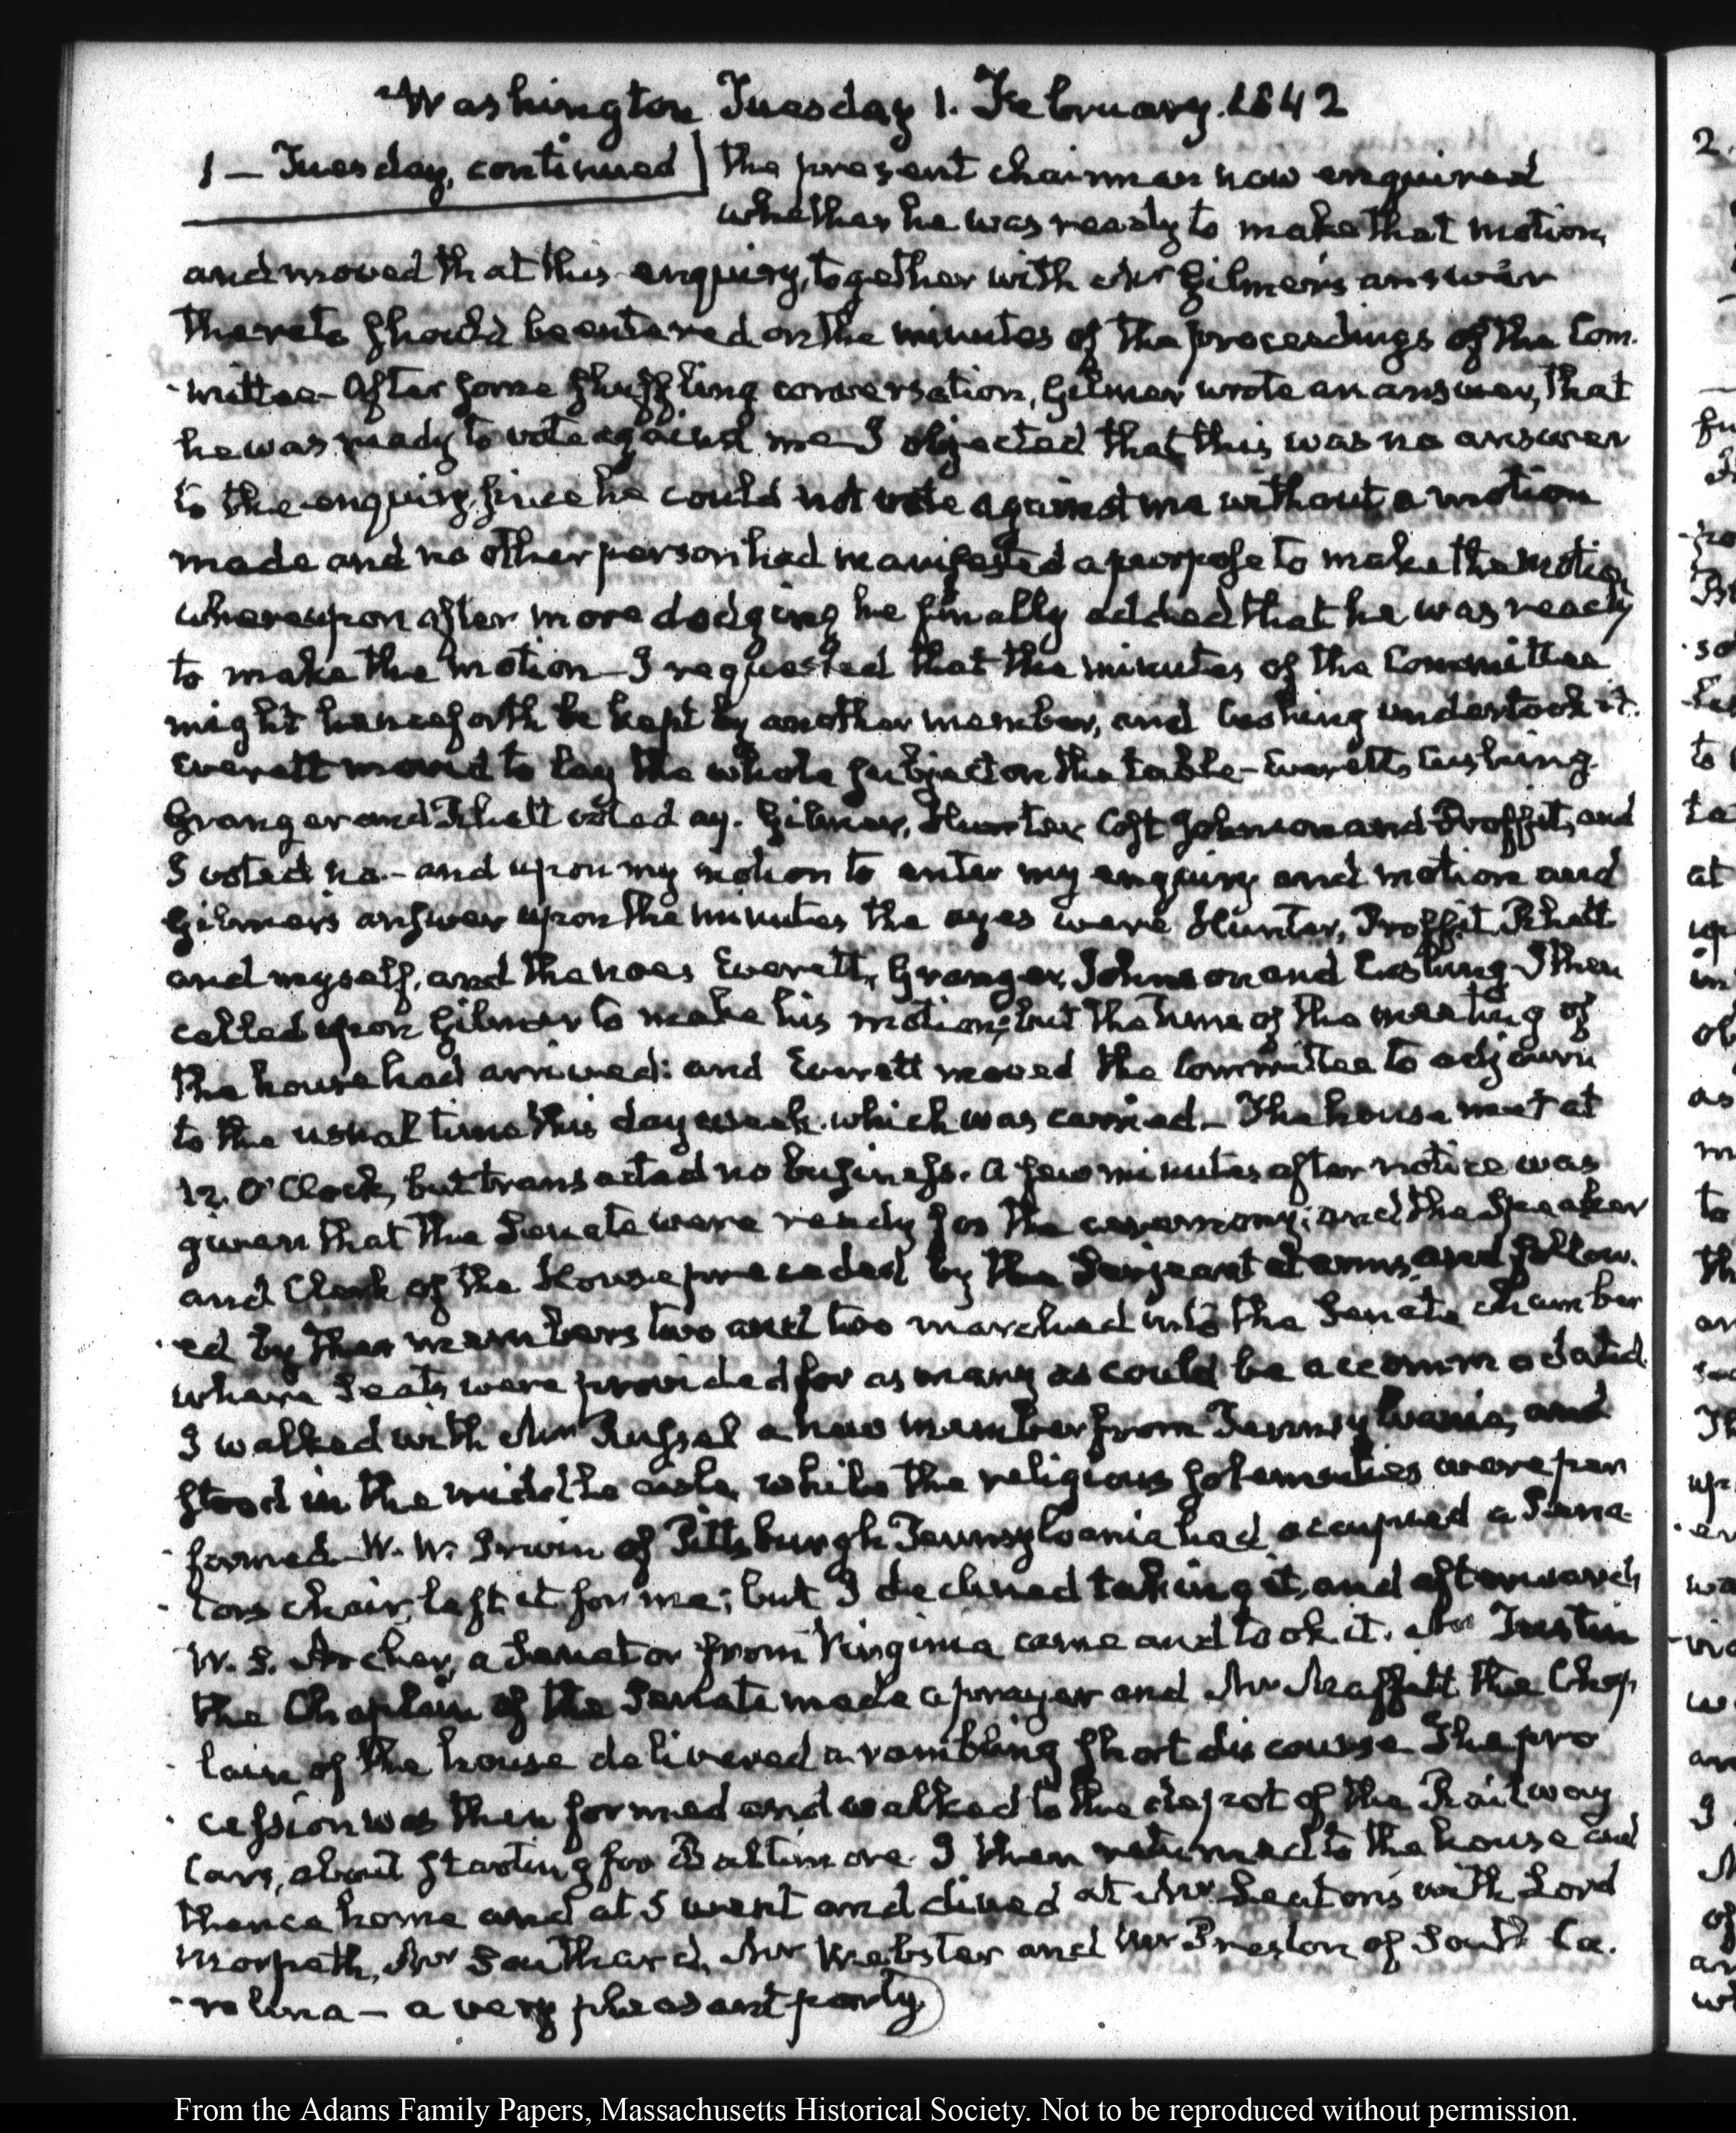 Washington Tuesday 1. February. 1842
1 — Tuesday, continued] The present chairman now enquired
whether he was ready to make that motion,
and moved that this enquiry, together with Mr Gilmer's answer
thereto should be entered on the minutes of the proceedings of the Com-
-mittee — After some shuffling conversation, Gilmer wrote an answer, that
he was ready to vote against me — I objected that this was no answer
to the enquiry, since he could not vote against me without a motion
made and no other person had manifested a purpose to make the motion
whereupon after more dodging he finally added that he was ready
to make the motion — I requested that the minutes of the Committee
might henceforth be kept by another member, and Cushing undertook it.
Everett moved to lay the whole subject on the table — Everett, Cushing
Granger and Rhett voted ay. Gilmer, Hunter, Cost Johnson and Proffit, and
I voted no. — and upon my motion to enter my enquiry and motion and
Gilmer's answer upon the minutes the ayes were Hunter, Proffit, Rhett
and myself, and the noes Everett, Granger, Johnson and Cushing — I then
called upon Gilmer to make his motion; but the time of the meeting of
the house had arrived: and Everett moved the Committee to adjourn
to the usual time this day week. which was carried. — The house met at
12. O'Clock, but transacted no business. A few minutes after notice was
given that the Senate were ready for the ceremony; and the Speaker
and Clerk of the House preceded by the Serjeant at arms, and follow-
-ed by the members two and two marched into the Senate chamber
where seats were provided for as many as could be accommodated.
I walked with Mr Russel a new member from Pennsylvania, and
stood in the middle aisle while the religious solemnities were per
-formed — W. W. Irwin of Pittsburgh Pennsylvania had occupied a Sena-
-tors chair, left it for me; but I declined taking it, and afterwards
W. S. Archer, a Senator from Virginia came and took it. Mr Tustin
the Chaplain of the Senate made a prayer and Mr Maffitt the Chap
-lain of the house delivered a rambling short discourse — The pro
-cession was then formed and walked to the depot of the Railway
Cars, about starting for Baltimore. I then returned to the house and
thence home and at 5 went and dined at Mr Seaton's with Lord
Morpeth, Mr Southard, Mr Webster and Mr Preston of South Ca-
-rolina — a very pleasant party.
From the Adams Family Papers, Massachusetts Historical Society. Not to be reproduced without permission.